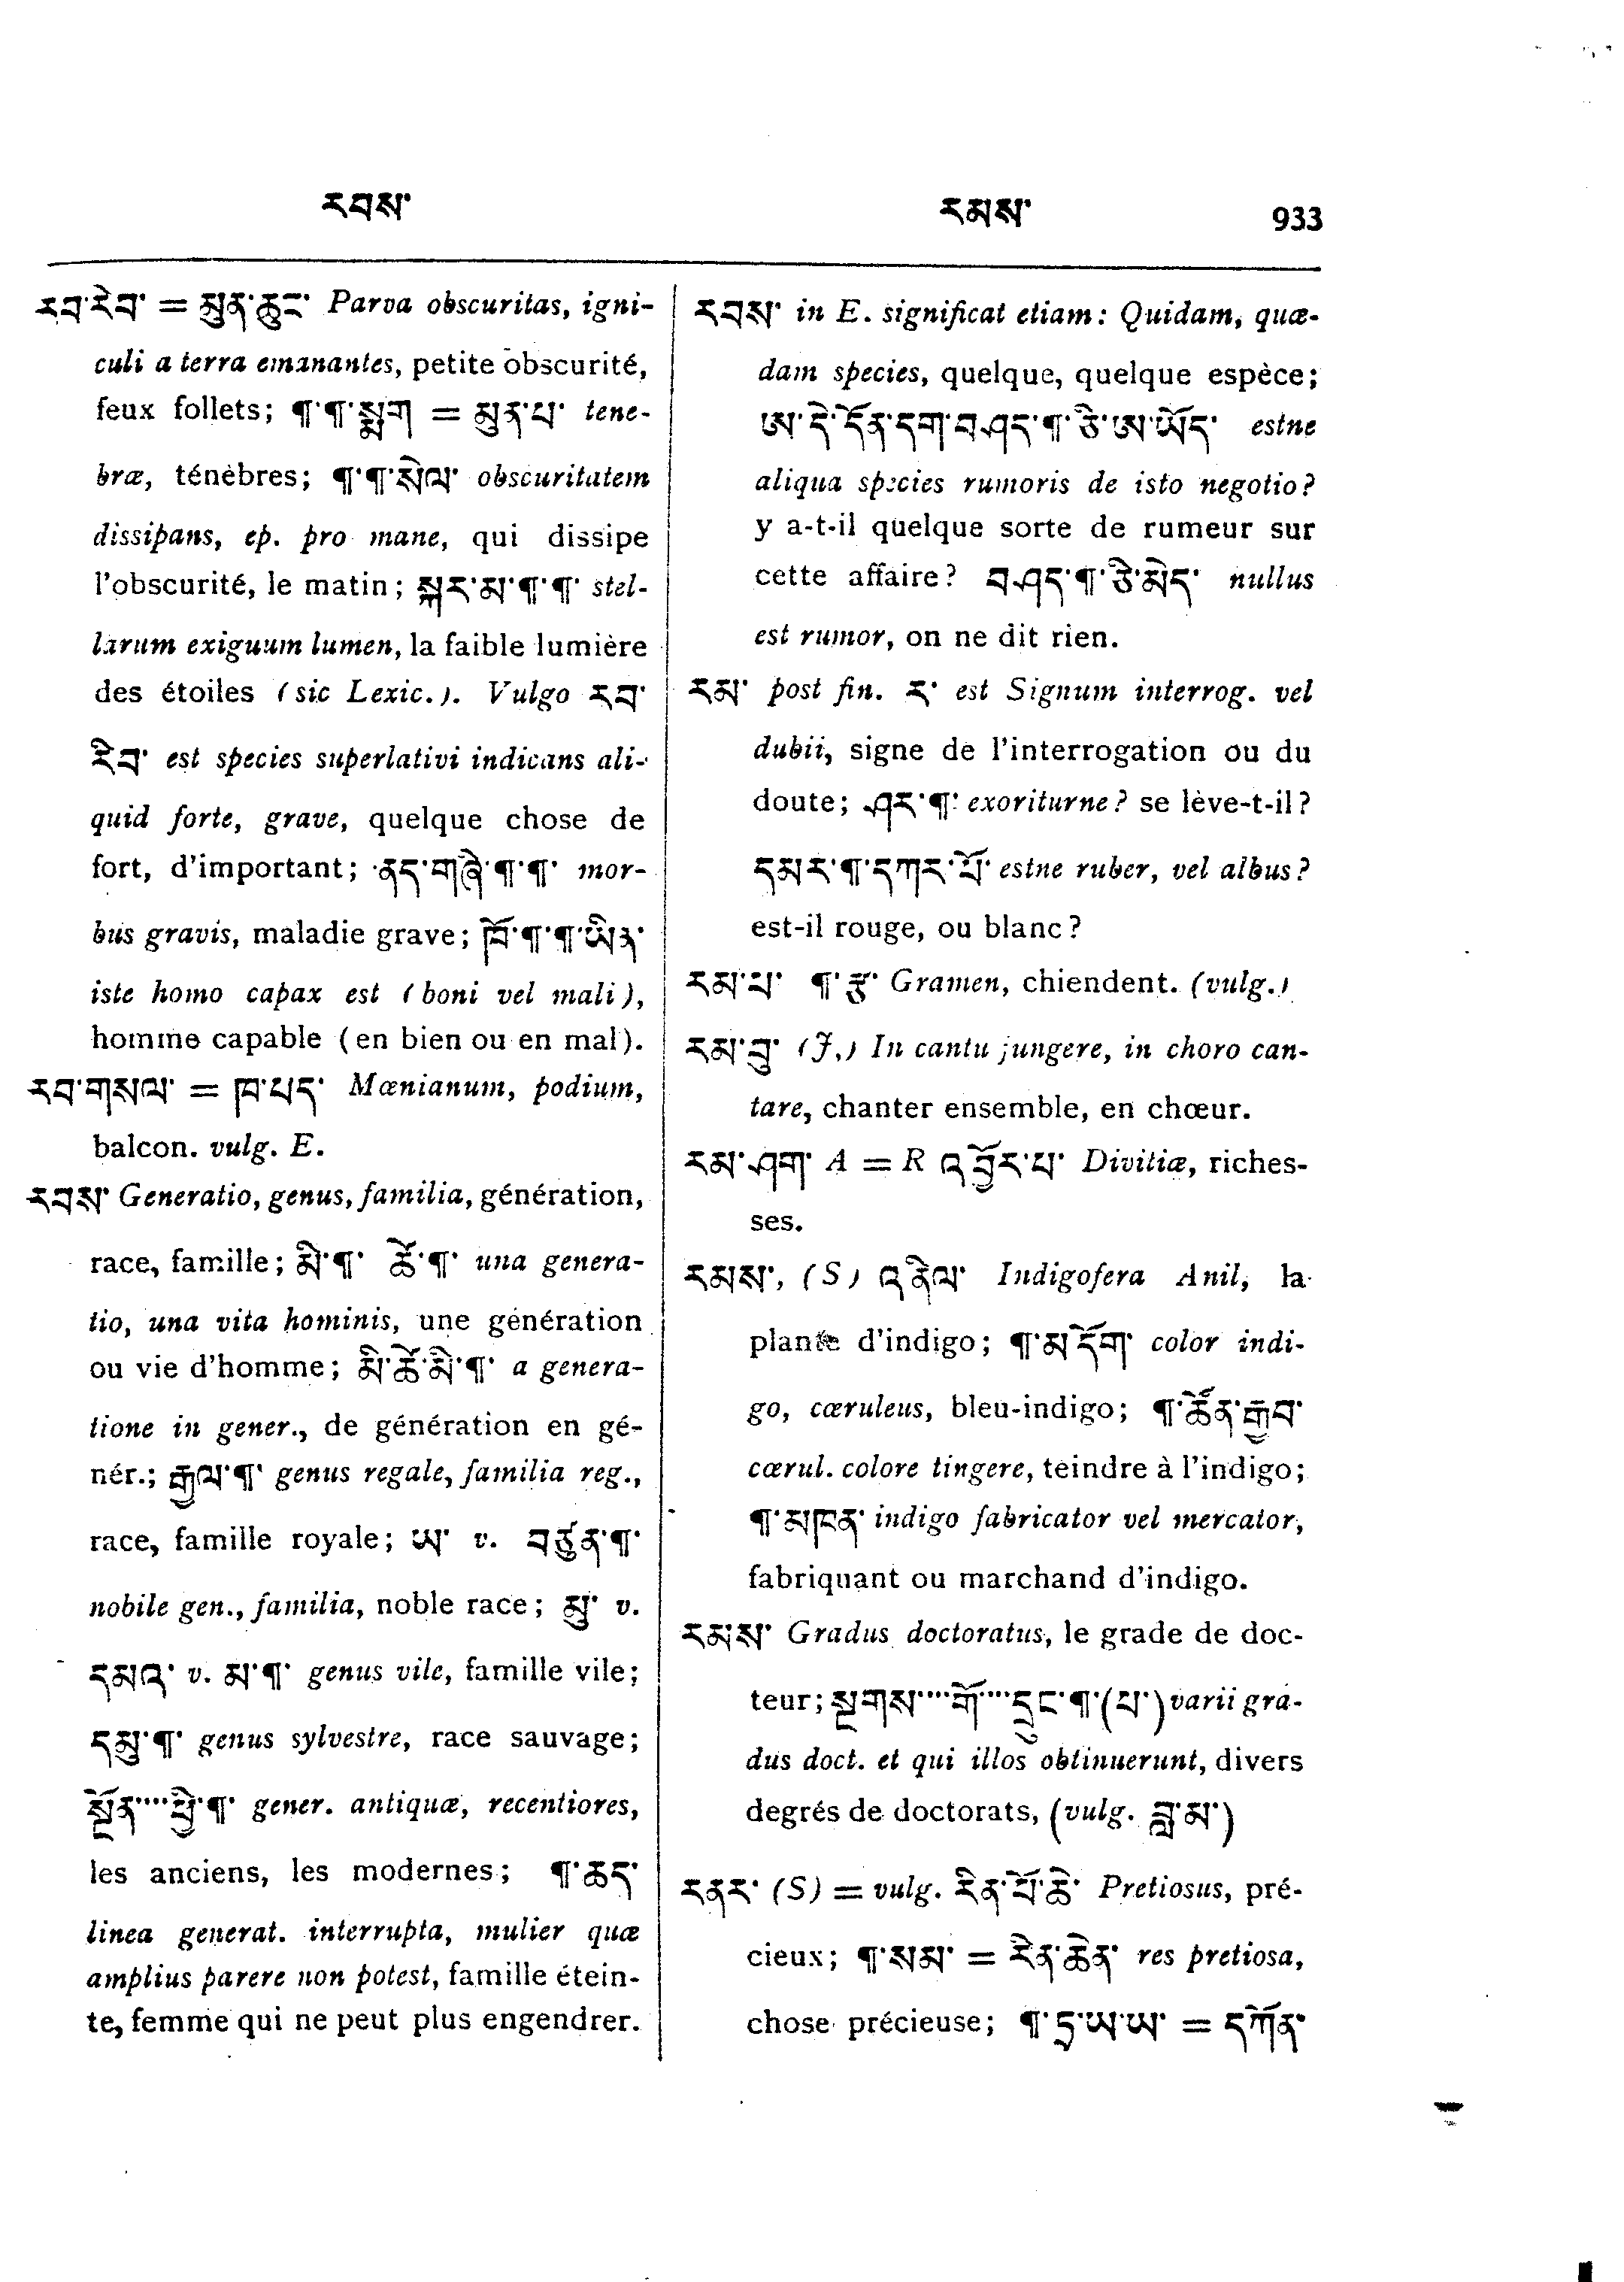 རབས་
རམས་ 933
རབ་རིབ་ = མུན་ཆུང་ Parva obscuritas, igni-
culi a terra emanantes, petite obscurité,
feux follets; ¶་¶་སྨག = མུན་པ་ tene-
bræ, ténèbres; ¶་¶་སེལ་ obscuritatem
dissipans, ep. pro mane, qui dissipe
l'obscurité, le matin; སྐར་མ་¶་¶་ stel-
larum exiguum lumen, la faible lumière
des étoiles (sic Lexic.). Vulgo རབ་
རིབ་ est species superlativi indicans ali-
quid forte, grave, quelque chose de
fort, d'important; ནད་གཞི་¶་¶་ mor-
bus gravis, maladie grave; ཁོ་¶་¶་ཡིན་
iste homo capax est (boni vel mali),
homme capable (en bien ou en mal).
རབ་གསལ་ = ཁ་པད་ Mœnianum, podium,
balcon. vulg. E.
རབས་ Generatio, genus, familia, génération,
race, famille; མི་¶་ ཚོ་¶་ una genera-
tio, una vita hominis, une génération
ou vie d'homme; མི་ཚོ་མི་¶་ a genera-
tione in gener., de génération en gé-
nér.; རྒྱལ་¶་ genus regale, familia reg.,
race, famille royale; ཡ་ v. བཙུན་¶་
nobile gen., familia, noble race; མུ་ v.
དམའ་ v. མ་¶་ genus vile, famille vile;
དམུ་¶་ genus sylvestre, race sauvage;
སྔོན་····ཕྱི་¶་ gener. antiquæ, recentiores,
les anciens, les modernes; ¶་ཆད་
linea generat. interrupta, mulier quæ
amplius parere non potest, famille étein-
te, femme qui ne peut plus engendrer.
རབས་ in E. significat etiam: Quidam, quæ-
dam species, quelque, quelque espèce;
ཨ་དེ་དོན་དག་བཤད་¶་ཅི་ཨ་ཡོད་ estne
aliqua species rumoris de isto negotio?
y a-t-il quelque sorte de rumeur sur
cette affaire? བཤད་¶་ཅི་མེད་ nullus
est rumor, on ne dit rien.
རམ་ post fin. ར་ est Signum interrog. vel
dubii, signe de l'interrogation ou du
doute; ཤར་¶་ exoriturne? se lève-t-il?
དམར་¶་དཀར་པོ་ estne ruber, vel albus?
est-il rouge, ou blanc?
རམ་པ་ ¶་རྩ་ Gramen, chiendent. (vulg.)
རམ་བུ་ (J.) In cantu jungere, in choro can-
tare, chanter ensemble, en chœur.
རམ་ཤག་ A = R འབྱོར་པ་ Divitiæ, riches-
ses.
རམས་, (S) འནིལ་ Indigofera Anil, la
plante d'indigo; ¶་མདོག་ color indi-
go, cœruleus, bleu-indigo; ¶་ཚོན་རྒྱབ་
cœrul. colore tingere, teindre à l'indigo;
¶་མཁན་ indigo fabricator vel mercator,
fabriquant ou marchand d'indigo.
རམས་ Gradus doctoratus, le grade de doc-
teur; སྔགས་····གོ་····དྲུང་¶་(པ་) varii gra-
dus doct. et qui illos obtinuerunt, divers
degrés de doctorats, (vulg. བླ་མ་)
རནར་ (S) = vulg. རིན་པོ་ཆེ་ Pretiosus, pré-
cieux; ¶་སམ་ = རིན་ཆེན་ res pretiosa,
chose précieuse; ¶་དྲ་ཡ་ཡ་ = དཀོན་